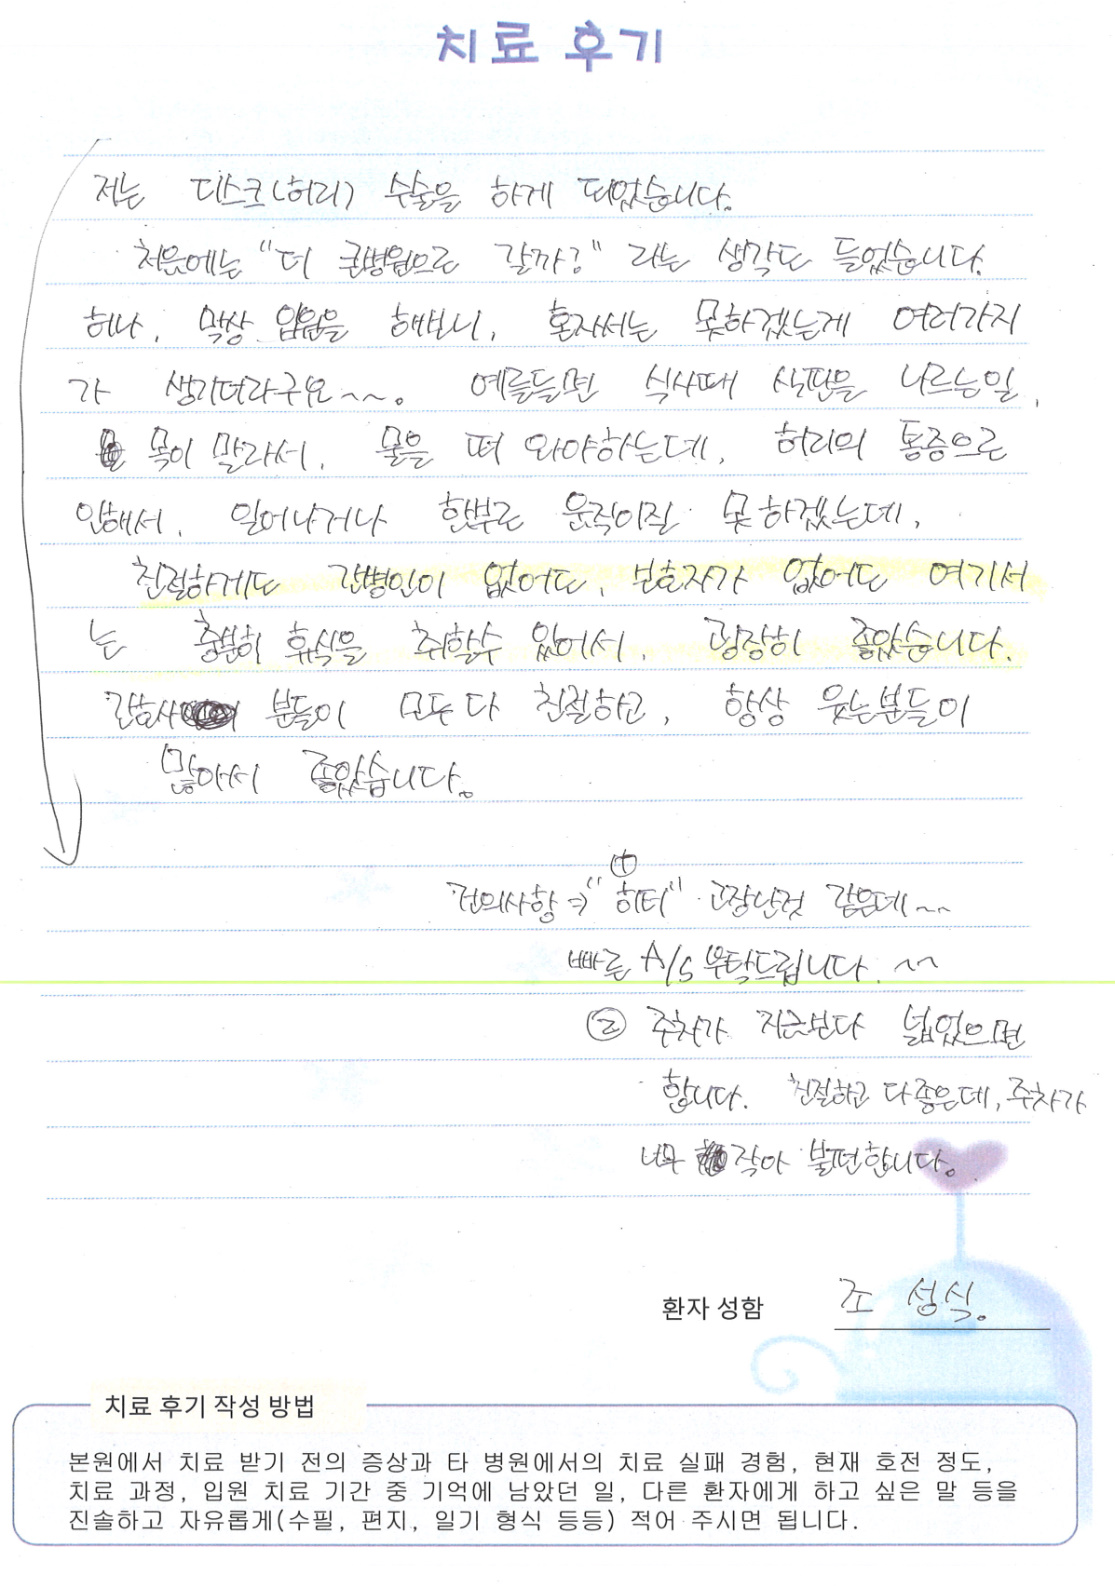 치료 후기
저는 디스크(허리) 수술을 하게 되었습니다.
처음에는 "더 큰병원으로 갈까?" 라는 생각도 들었습니다.
허나, 막상 입원을 해보니, 혼자서는 못하겠는게 여러가지
가 생기더라구요~~. 예를들면 식사때 식판을 나르는일,
목이 말라서, 물을 떠 와야하는데, 허리의 통증으로
인해서, 일어나거나 함부로 움직이질 못하겠는데,
친절하게도 간병인이 없어도, 보호자가 없어도 여기서
는 충분히 휴식을 취할수 있어서, 굉장히 좋았습니다.
간호사 분들이 모두 다 친절하고, 항상 웃는분들이
많아서 좋았습니다.
①
건의사항 ⇒ "히터" 고장난것 같은데~~
빠른 A/S 부탁드립니다. ^^
② 주차가 지금보다 넓었으면
합니다. 친절하고 다 좋은데, 주차가
너무 작아 불편합니다.
환자 성함 조 성식.
치료 후기 작성 방법
본원에서 치료 받기 전의 증상과 타 병원에서의 치료 실패 경험, 현재 호전 정도,
치료 과정, 입원 치료 기간 중 기억에 남았던 일, 다른 환자에게 하고 싶은 말 등을
진솔하고 자유롭게(수필, 편지, 일기 형식 등등) 적어 주시면 됩니다.